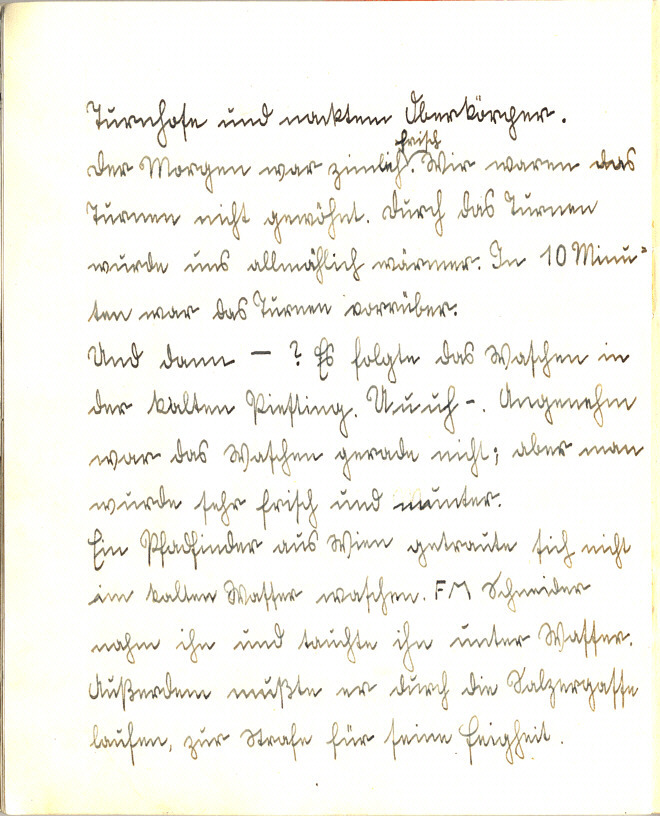 Turnhose und nacktem Oberkörper.
Der Morgen war zimlich frisch. Wir waren das
Turnen nicht gewöhnt. Durch das Turnen
wurde uns allmählich wärmer. In 10 Minu-
ten war das Turnen vorrüber.
Und dann – ? Es folgte das Waschen in
der kalten Piesting. Uuuh –. Angenehm
war das Waschen gerade nicht; aber man
wurde sehr frisch und munter.
Ein Pfadfinder aus Wien getraute sich nicht
im kalten Wasser waschen. FM Schneider
nahm ihn und tauchte ihn unter Wasser.
Außerdem mußte er durch die Salzergasse
laufen, zur Strafe für seine Feigheit.